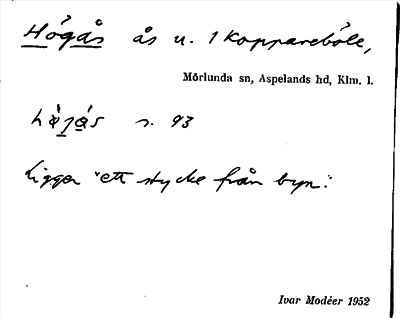 Högås ås u. 1 Koppareböle,
Mörlunda sn, Aspelands hd, Klm. l.
s. 93
Ligger "ett stycke från byn".
Ivar Modéer 1952